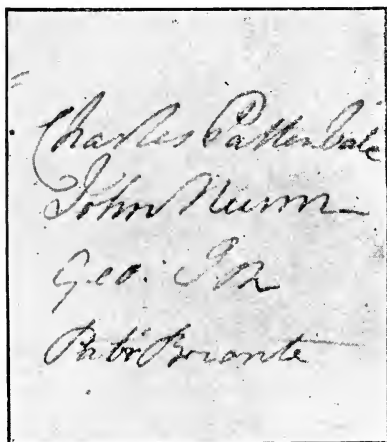 Charles Patterdale
John Nunn
Geo: Fox
Patr. Bronte